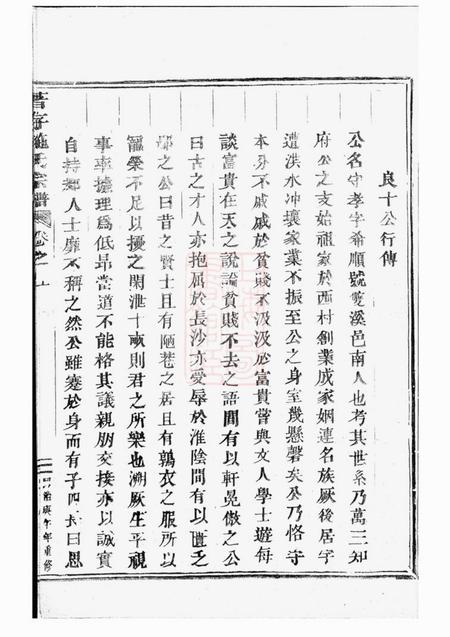 良十公行傳
公名守孝字希順號雙溪邑南人也考其世系乃萬三知
府公之支始祖家於西村創業成家姻連名族厥後居字
遭洪水冲壞家業不振至公之身室幾懸磬矣公乃恪守
本分不戚戚於貧賤不汲汲於富貴嘗與文人學士遊每
談富貴在天之說論貧賤不去之語間有以軒冕傲之公
曰古之才人亦抱屈於長沙亦受辱於淮陰間有以匱乏
鄙之公曰昔之賢士且有陋巷之居且有鶉衣之服所以
寵榮不足以擾之閑泄十畝則君之所樂也溯厥生平視
事率據理爲低昂當道不能格其議親朋交接亦以誠實
自持鄉人士靡不稱之然公雖蹇於身而有子四長曰思
氏宗譜 卷之上
年重修